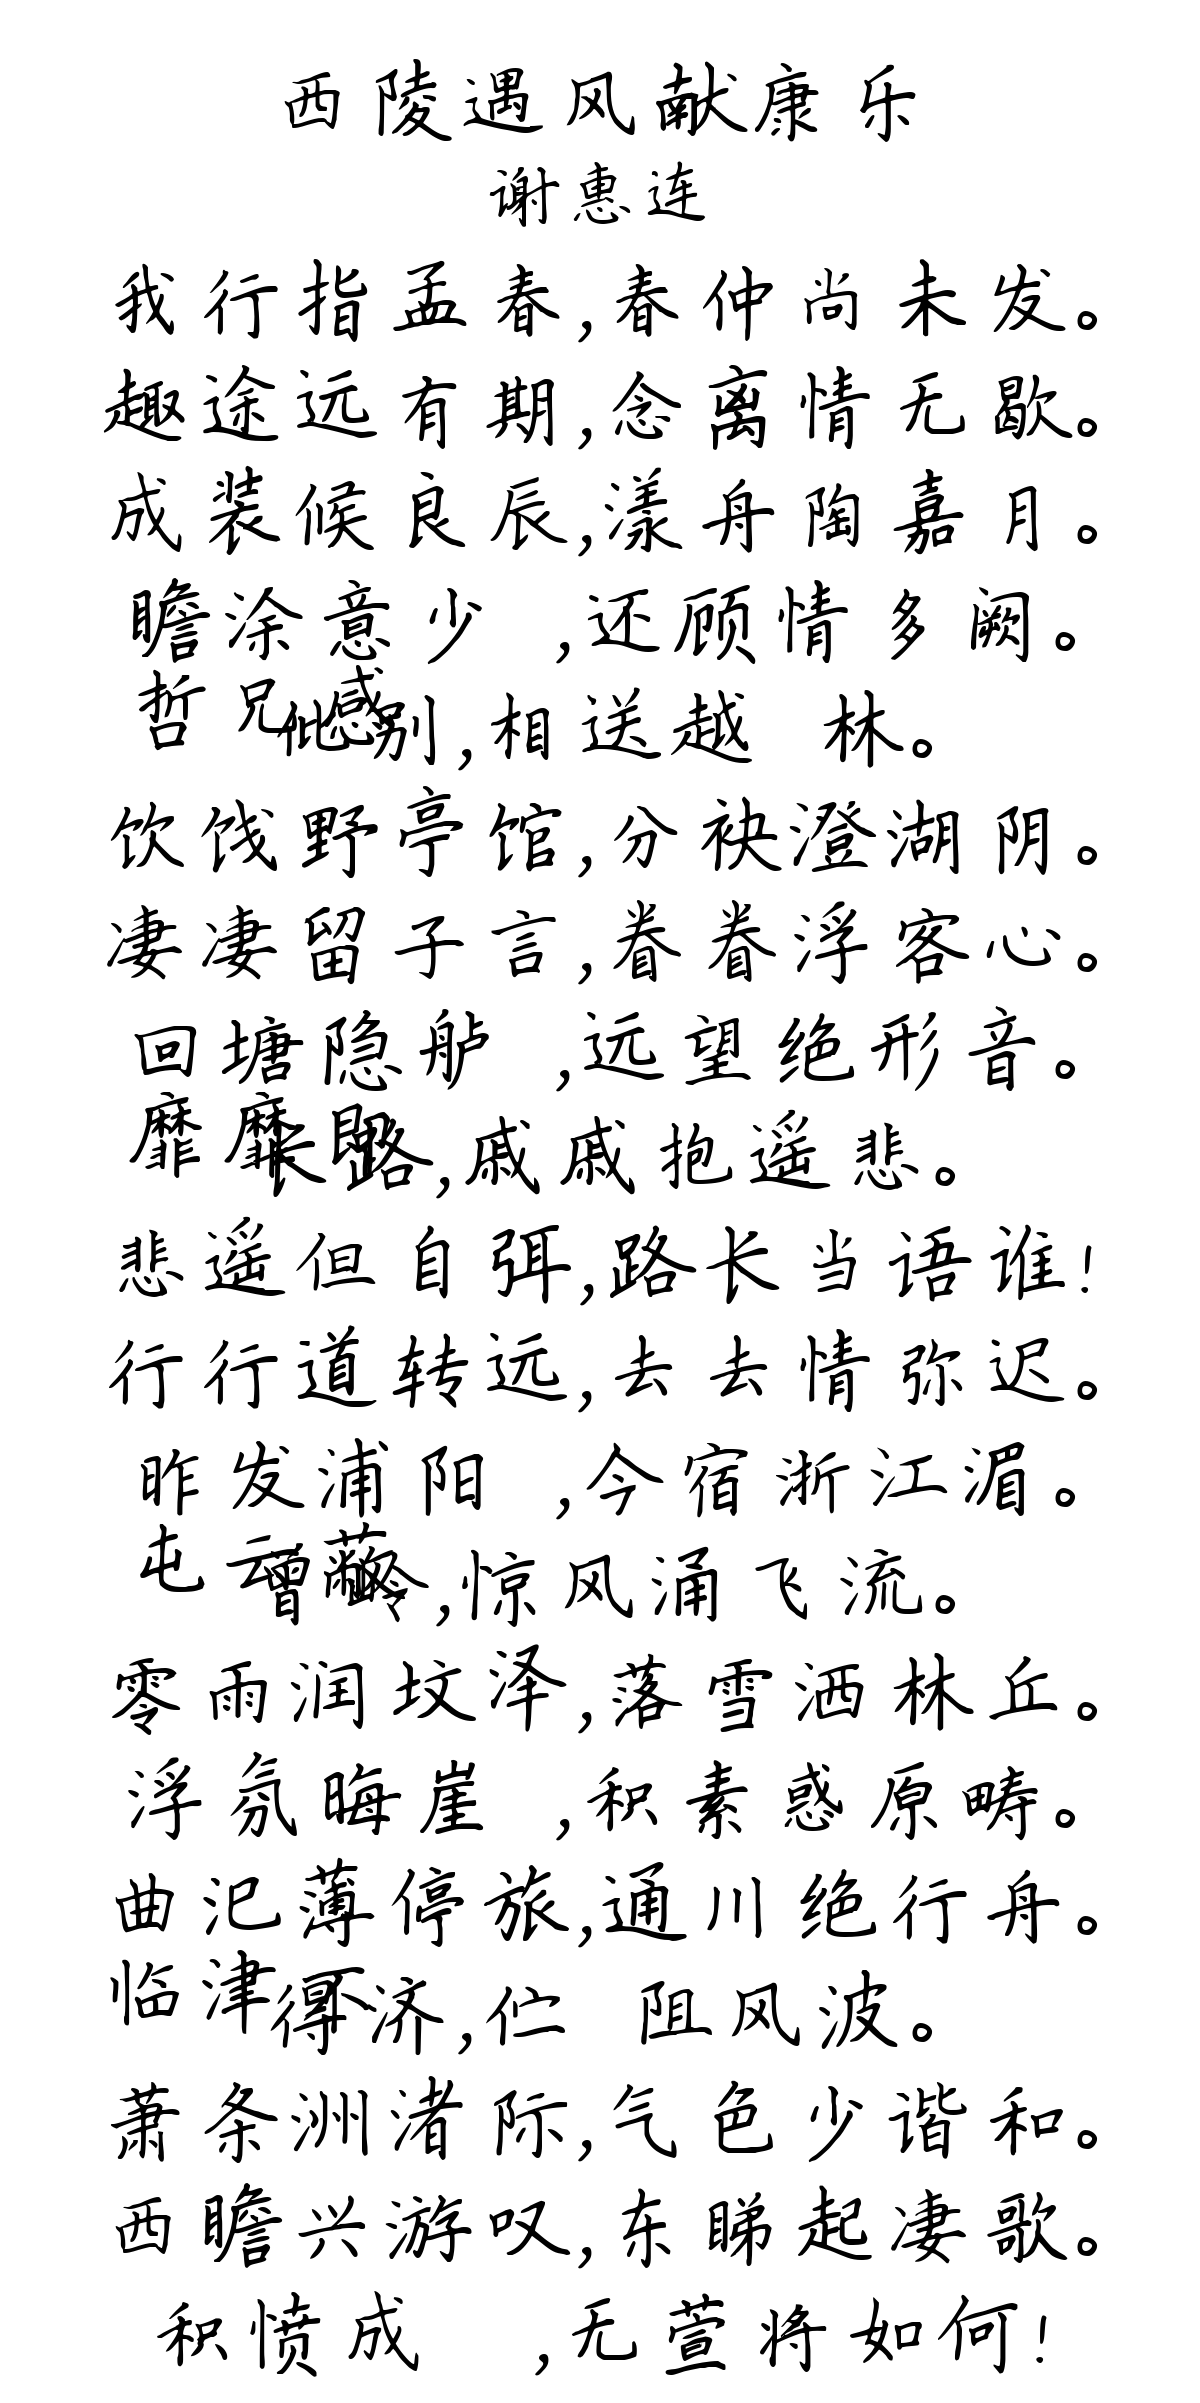 西陵遇风献康乐
谢惠连
我行指孟春,春仲尚未发。
趣途远有期,念离情无歇。
成装候良辰,漾舟陶嘉月。
瞻涂意少 ,还顾情多阙。
哲兄感仳别,相送越 林。
饮饯野亭馆,分袂澄湖阴。
凄凄留子言,眷眷浮客心。
回塘隐舻 ,远望绝形音。
靡靡即长路,戚戚抱遥悲。
悲遥但自弭,路长当语谁!
行行道转远,去去情弥迟。
昨发浦阳 ,今宿浙江湄。
屯云蔽曾岭,惊风涌飞流。
零雨润坟泽,落雪洒林丘。
浮氛晦崖 ,积素惑原畴。
曲汜薄停旅,通川绝行舟。
临津不得济,伫 阻风波。
萧条洲渚际,气色少谐和。
西瞻兴游叹,东睇起凄歌。
积愤成 ,无萱将如何!